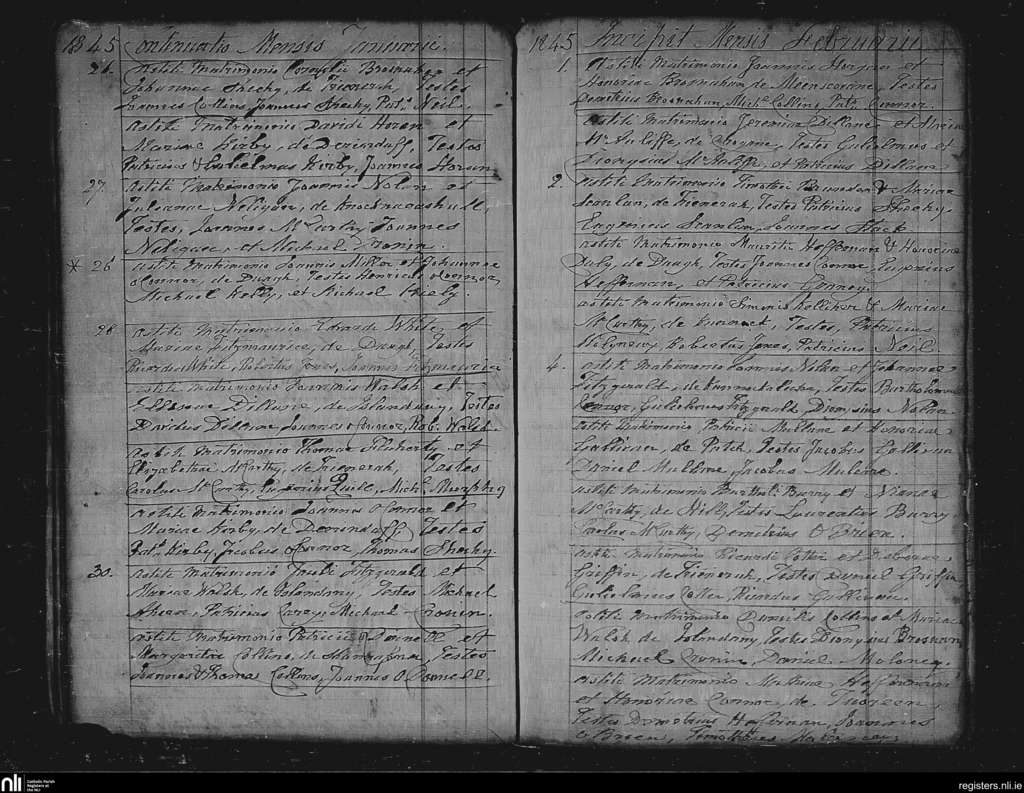 1845 Continuatio Mensis Januarii.
26. Astiti Matrimonio Cornelii Brosnahan et
Johannae Sheehy, de Trienerah, Testes
Joannes Collins, Joannes Sheehy, Pat. Neil.
Astiti Matrimonio Davidi Horan et
Mariae Kirby, de Derindaff, Testes
Patricius & Gulielmus Kirby, Joannes Horan
27 Astiti Matrimonio Joannis Nolan et
Julianae Neligan, de
Testes, Joannes McCarthy Joannes
Neligan, et Michael Cronin.
* 26 Astiti Matrimonio Joannis Miller et Johannae
o Connor, de Duagh, Testes Henricus oConnor,
Michael Kelly, et Michael Kiely.
28 Astiti Matrimonio Edvardi White et
Mariae Fitzmaurice, de Duagh, Testes
Ricardus White, Robertus Jones, Joannes Fitzmaurice
Astiti Matrimonio Joannis Walsh et
Ellenae Dillane, de Islandany, Testes
Davidus Dillane, Joannes oConnor, Rob. Walsh.
Astiti Matrimonio Thomae Fluherty et
Elizabethae McCarthy, de Trienerah, Testes
Carolus McCarthy, Eugenius Quill, Mich. Murphy
Astiti Matrimonio Joannis OConnor et
Mariae Kirby, de Derrindaff, Testes
Pat. Kirby, Jacobus oConnor, Thomas Sheehy.
30. Astiti Matrimonio Fitzgerald et
Mariae Walsh, de Islandany, Testes Michael
Ahern, Patricius Carey, Michael Cronin.
Astiti Matrimonio Patricii O Donnell et
Margaritae Collins, de Testes
Joannes & Thomas Collins, Joannes O Donnell.
1845 Incipit Mensis Februarii
1. Astiti Matrimonio Joannis Horgan et
Honoriae Brosnahan de Meenscovane, Testes
Demetrius Brosnahan, Mich. Collins, Pat. Connor.
Astiti Matrimonio Jeremiae Dillane et Mariae
McAuliffe, de Testes Gulielmus et
Dionysius McAuliffe, et Patricius Dillane
2. Astiti Matrimonio Timothei Brosnahan & Mariae
Scanlan, de Trienerah, Testes Patricius Sheehy,
Eugenius Scanlan, Joannes Stack
Astiti Matrimonio Mauritii Heffernan & Honoriae
Daly, de Duagh, Testes Joannes Connor, Eugenius
Heffernan, et Patricius
Astiti Matrimonio Simonis Kelliher & Mariae
McCarthy, de Testes, Patricius
Molyneux, Robertus Jones, Patricius Neil
4. Astiti Matrimonio Joannis Nolan et Johannae
Fitzgerald, de Testes Bartholomeus
Connor, Gulielmus Fitzgerald, Dionysius Nolan.
Astiti Matrimonio Patricii Mullane et Honoriae
Gallivan, de Testes Jacobus Gallivan
Daniel Mullane, Jacobus Mullane.
Astiti Matrimonio Barthol. Barry et
McCarthy, de Hill, Testes Laurentius Barry
Carolus McCarthy, Demetrius O Brien.
Astiti Matrimonio Ricardi Cotter et Deborae
Griffin, de Trienerah, Testes Daniel Griffin
Gulielmus Cotter, Ricardus Gallivan.
Astiti Matrimonio Danielis Collins et Mariae
Walsh de Islandany, Testes Dionysius Brosnan
Michael Cronin, Daniel Moloney.
Astiti Matrimonio Heffernan
et Honoriae Connor, de Tooreen,
Testes Demetrius Heffernan, Joannes
O Brien,
nli Catholic Parish Registers at the NLI
registers.nli.ie